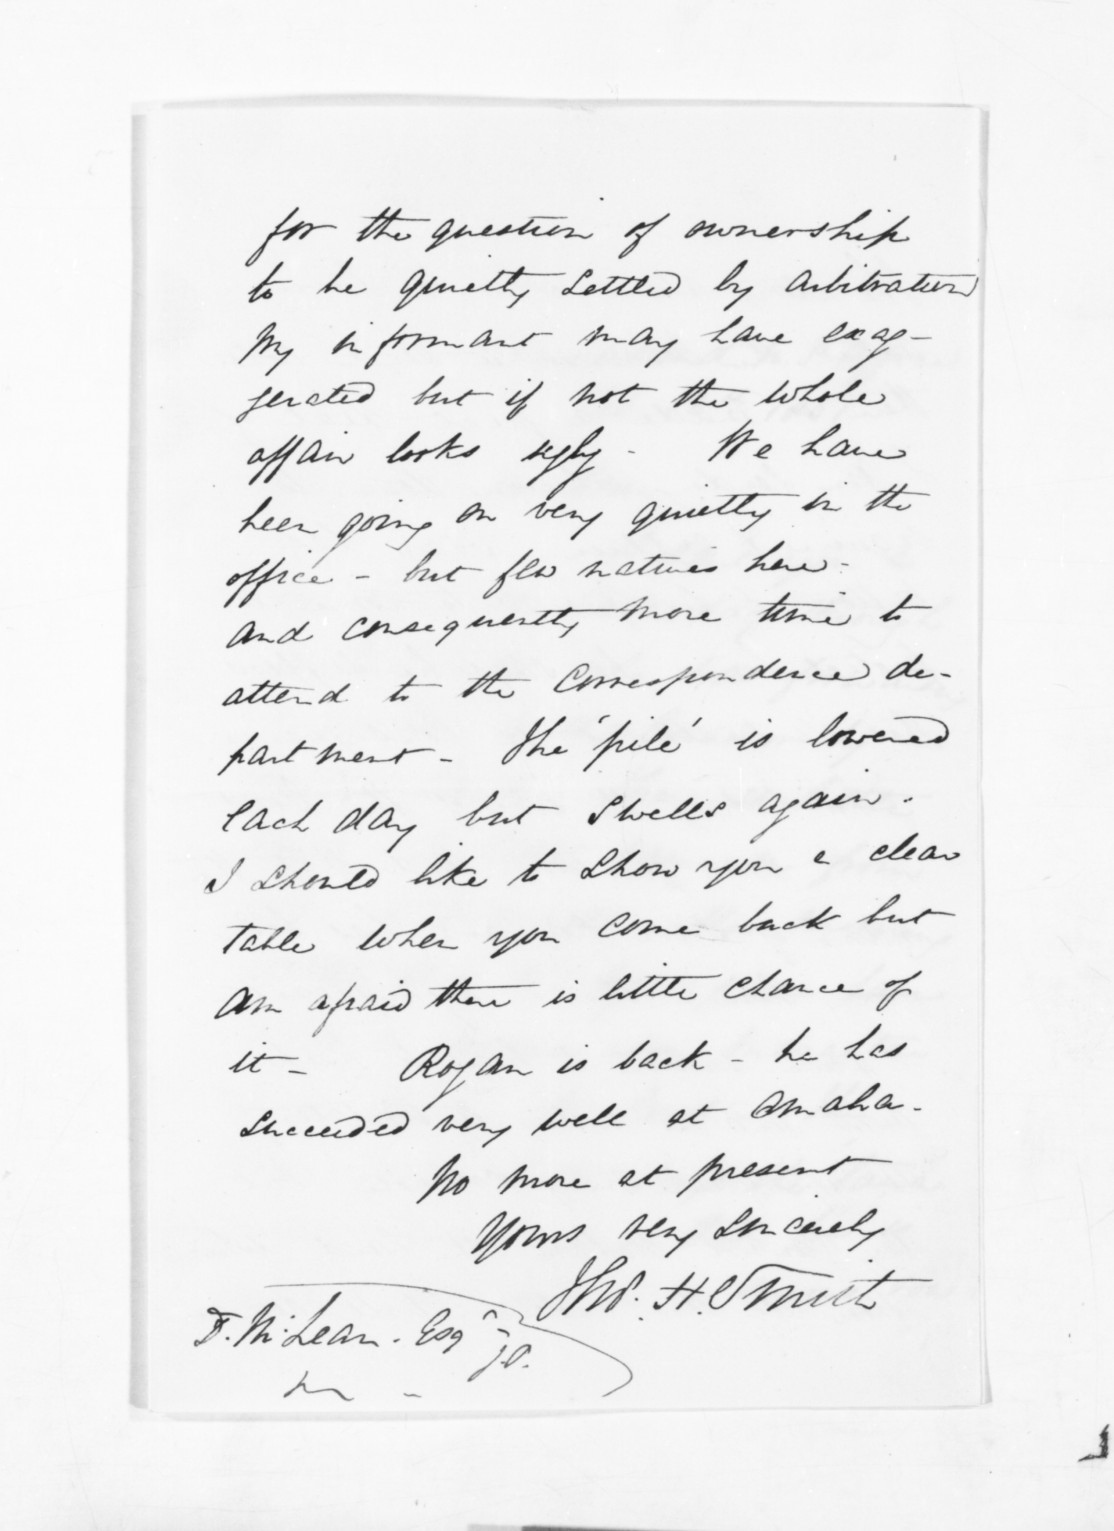 for the question of ownership
to be quietly settled by arbitration
My informant may have exag-
gerated but if not the whole
affair looks ugly - We have
been going on very quietly in the
office - but few natives here -
and consequently more time to
attend to the correspondence de-
partment - The 'pile' is lowered
each day but swells again.
I should like to show you a clear
table when you come back but
am afraid there is little chance of
it - Rogan is back - he has
succeeded very well at Omaha.
No more at present
Yours very sincerely
Thos. H. Smith
D. McLean. Esqr
J.P.